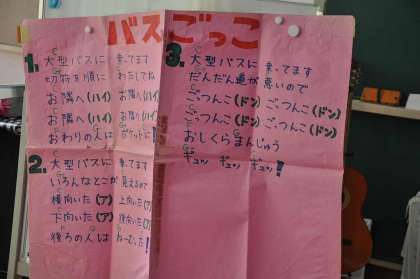 バスごっこ
1. 大型バスに 乗ってます
切符を順に わたしてね
お隣へ(ハイ) お隣へ(ハイ)
お隣へ(ハイ) お隣へ(ハイ)
おわりの人は ポケットに!
2. 大型バスに 乗ってます
いろんなとこが 見えるので
横向いた(ア) 上向いた(ア)
下向いた(ア) 後向いた(ア)
後ろの人は ねーむった!
3. 大型バスに 乗ってます
だんだん道が 悪いので
ごっつんこ(ドン) ごっつんこ(ドン)
ごっつんこ(ドン) ごっつんこ(ドン)
おしくらまんじゅう
ギュッ ギュッ ギュッ!